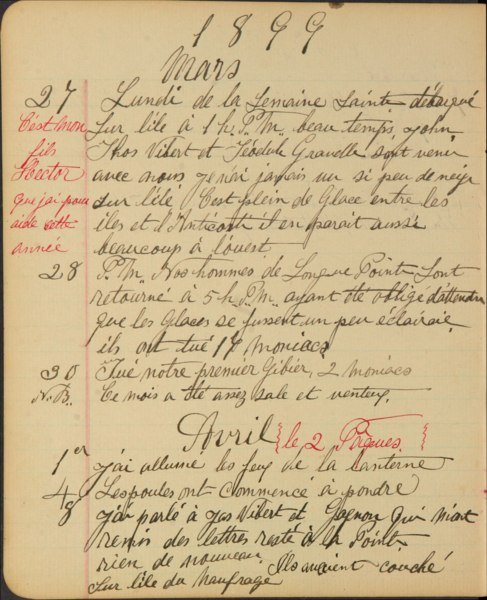 1899
Mars
27 Lundi de la Semaine Sainte débarqué
Sur lile à 1 h. P.M. beau temps, John,
Thos Vibert et Téodule Gravelle sont venu
avec nous je n'ai jamais vu si peu de neige
Sur l'ilé C'est plein de Glace entre les
îles et l'Anticosti il en parait aussi
beaucoup à l'ouest
C'est mon
fils
Hector
que j'ai pour
aide cette
année
28 P.M. Nos hommes de Longue Pointe Sont
retourné à 5 h P.M. ayant été obligé d'attendre
que les Glaces se fussent un peu éclaircie
ils ont tué 17 moniacs
30 Tué notre premier Gibier, 2 moniacs
N.B. Ce mois a été assez sale et venteux.
Avril {le 2 Pâques}
1er j'ai allumé les feux de la lanterne
4 Les poules ont commencé à pondre
8 j'ai parlé à Jas Vibert et Gagnon qui m'ont
remis des lettres resté à la Pointe
rien de nouveau Ils avaient couché
Sur lile du Naufrage